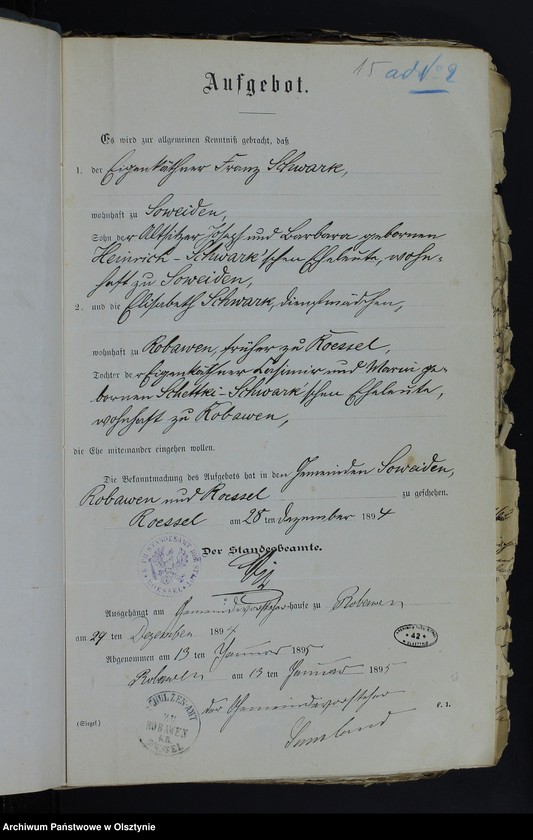 15 ad № 2
Aufgebot.
Es wird zur allgemeinen Kenntniß gebracht, daß
1. der Eigenkäthner Franz Schwark,
wohnhaft zu Soweiden,
Sohn der Altsitzer Joseph und Barbara gebornen
Heinrich-Schwark'schen Eheleute, wohn-
haft zu Soweiden,
2. und die Elisabeth Schwark, Dienstmädchen,
wohnhaft zu Robawen, früher zu Roessel,
Tochter der Eigenkäthner Casimir und Maria ge-
bornen Schettki-Schwark'schen Eheleute,
wohnhaft zu Robawen,
die Ehe miteinander eingehen wollen.
Die Bekanntmachung des Aufgebots hat in den Gemeinden Soweiden,
Robawen und Roessel zu geschehen.
Roessel am 28 ten Dezember 1894
Der Standesbeamte.
Ausgehängt am Gemeindevorsteher-hause zu Robawen
am 29 ten Dezember 1894
Abgenommen am 13 ten Januar 1895
Robawen am 13 ten Januar 1895
der Gemeindevorsteher
(Siegel)
SCHULZEN-AMT
ZU
ROBAWEN
KR.
RÖSSEL
* 42 *
F. 1.
Archiwum Państwowe w Olsztynie